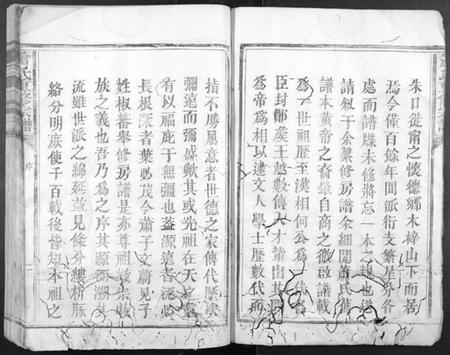 朱口徙甯之懷德鄉木梓山下而居
焉今僅百餘年間派衍支繁星居各
處而譜牒未修將忘一本之親也遂
請叙于余纂修房譜余細閱蕭氏舊
譜本黃帝之裔肇自商之微啟譜載
爲一世祖歷至漢相何公爲
臣封鄼矦王越數傳人才輩出其
爲帝爲相以逮文人學士歷數代而
指不勝屈意者世德之家傳代歷
彌遠而彌盛歟其或先祖在天之靈
有以福庇于無疆也蓋源遠者流必
長根深者葉必茂今蕭子文蔚見子
姓椒蕃舉修房譜是亦尊祖敬宗收
族之義也吾乃爲之序其源而溯其
流雖世派之綿延並見條分縷析脈
絡分明庶使千百載後皆知本祖之